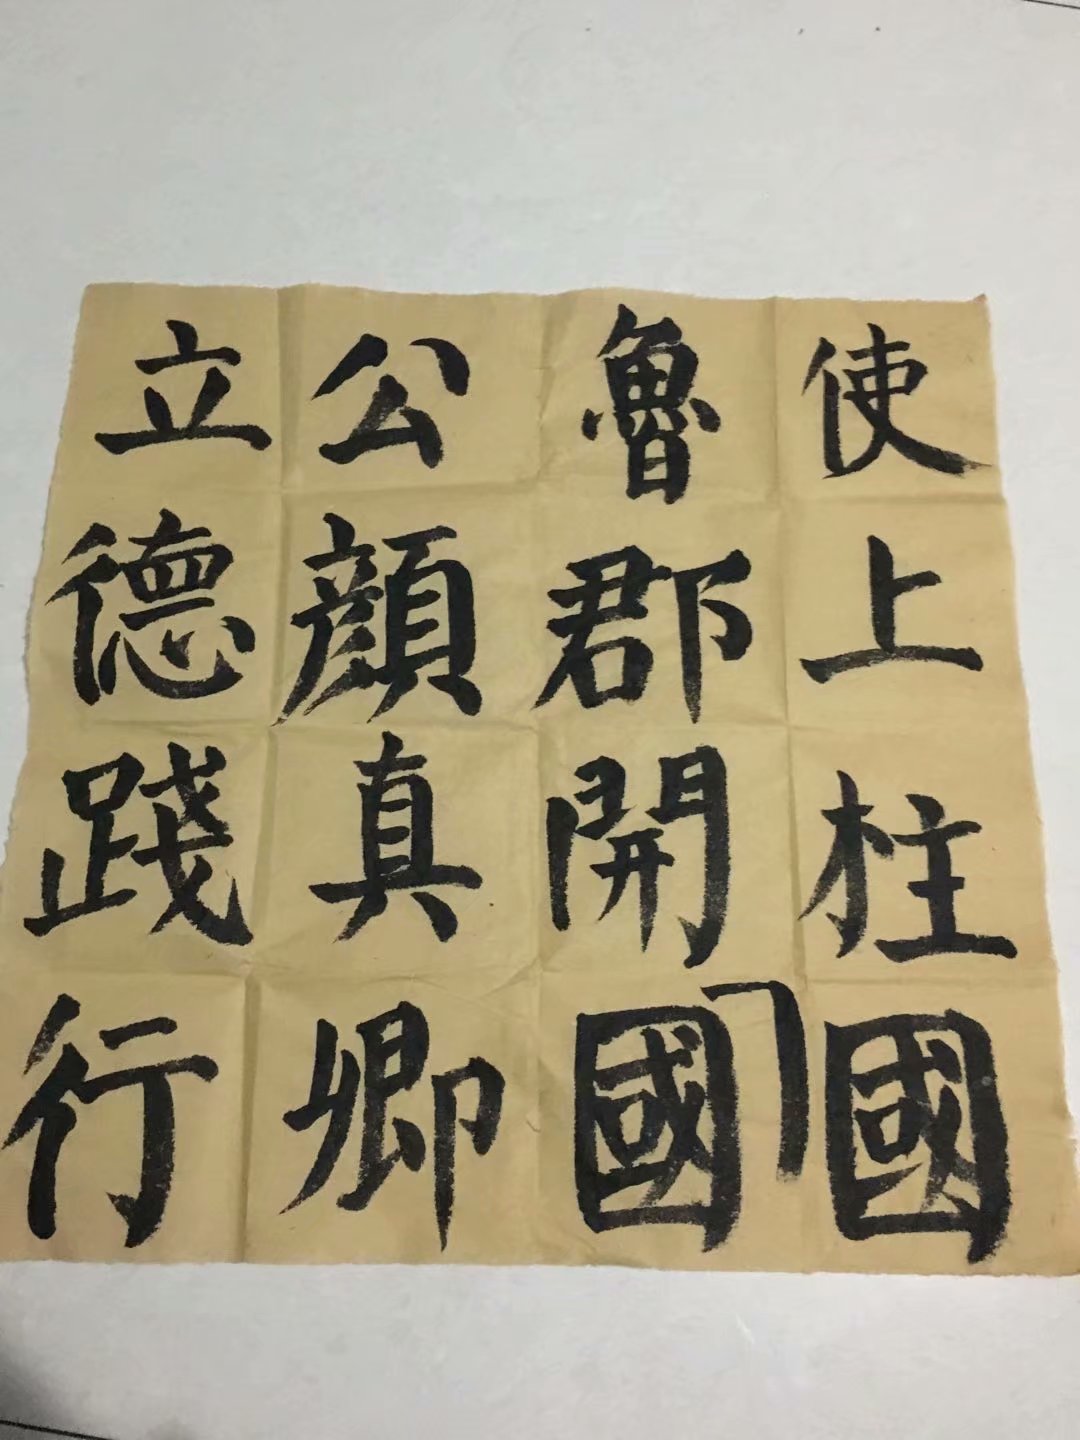 使上柱國
魯郡開國
公顏真卿
立德踐行